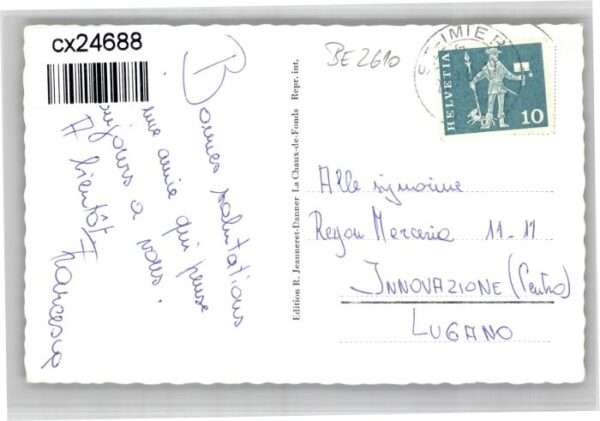 cx24688
BE 2610
ST-IMIER
HELVETIA
10
Bonnes salutations
une amie qui pense
toujours a vous.
A bientôt
Francesca
Edition R. Jeanneret-Danner La Chaux-de-Fonds Repr. int.
Alle signorine
Rayon Merceria 11-11
INNOVAZIONE (Centro)
LUGANO